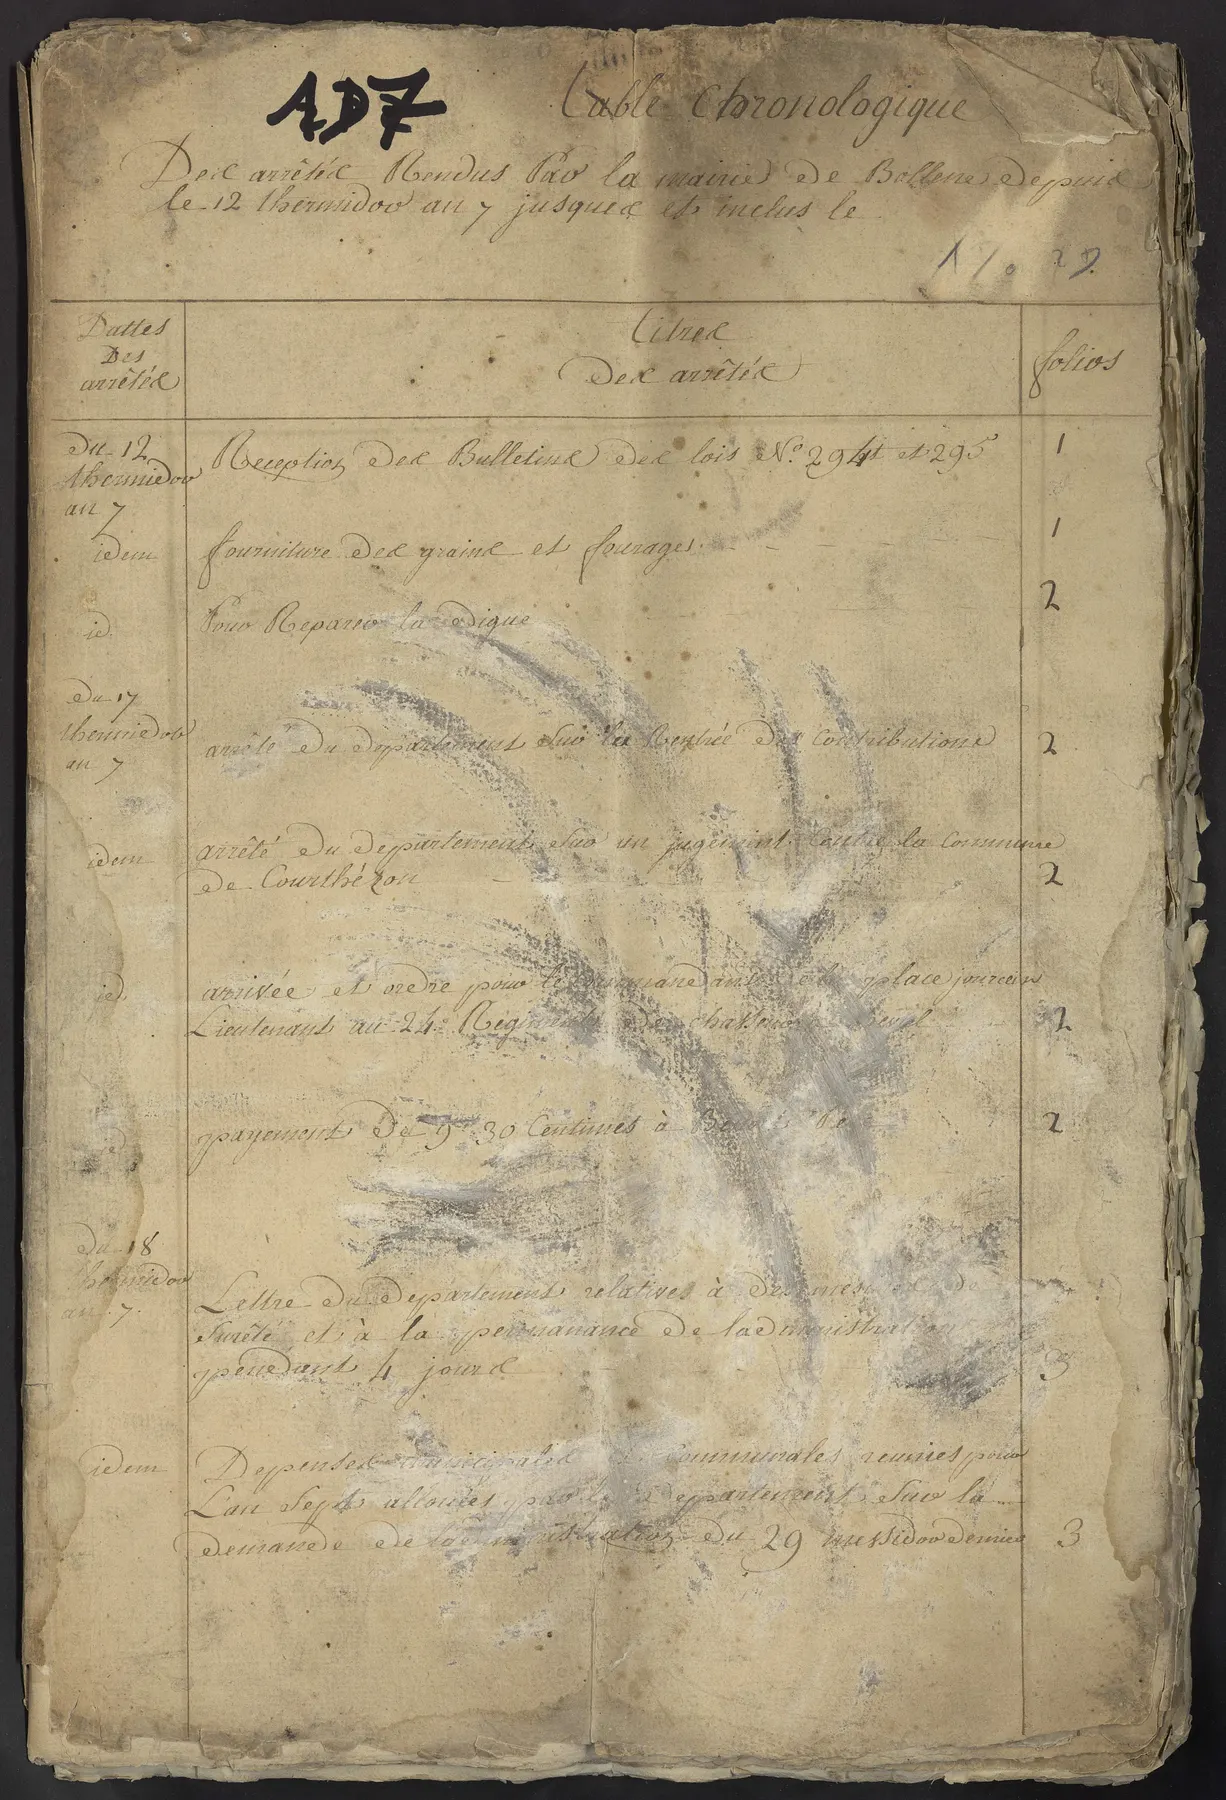 AD7
table Chronologique
Des arrêtés Rendus Par la mairie de Bollene depuis
le 12 thermidor an 7 jusques et inclus le
Dattes
Des
arrêtés
titres
Des arrêtés
folios
du 12
thermidor
an 7
Reception des Bulletins des lois N.º 294 et 295
1
idem
fourniture des grains et fourages
1
id.
Pour Reparer la digue
2
du 17
thermidor
an 7
arrêté du departement Sur la Rentrée des Contributions
2
idem
arrêté du departement Sur un jugement Contre la Commune
de Courthézon
2
id
arrivée et ordre pour le commandant de la place
Lieutenant au 24e Regiment de chasseurs
2
payement de 9 30 Centimes à
2
du 18
thermidor
an 7.
Lettre du departement relatives à des mesures de
Sureté et à la permanance de ladministration
pendant 4 jours
3
idem
Depenses municipales Communales reunies pour
L'an Sept allouées par le departement Sur la
demande de ladministration du 29 messidor dernier
3